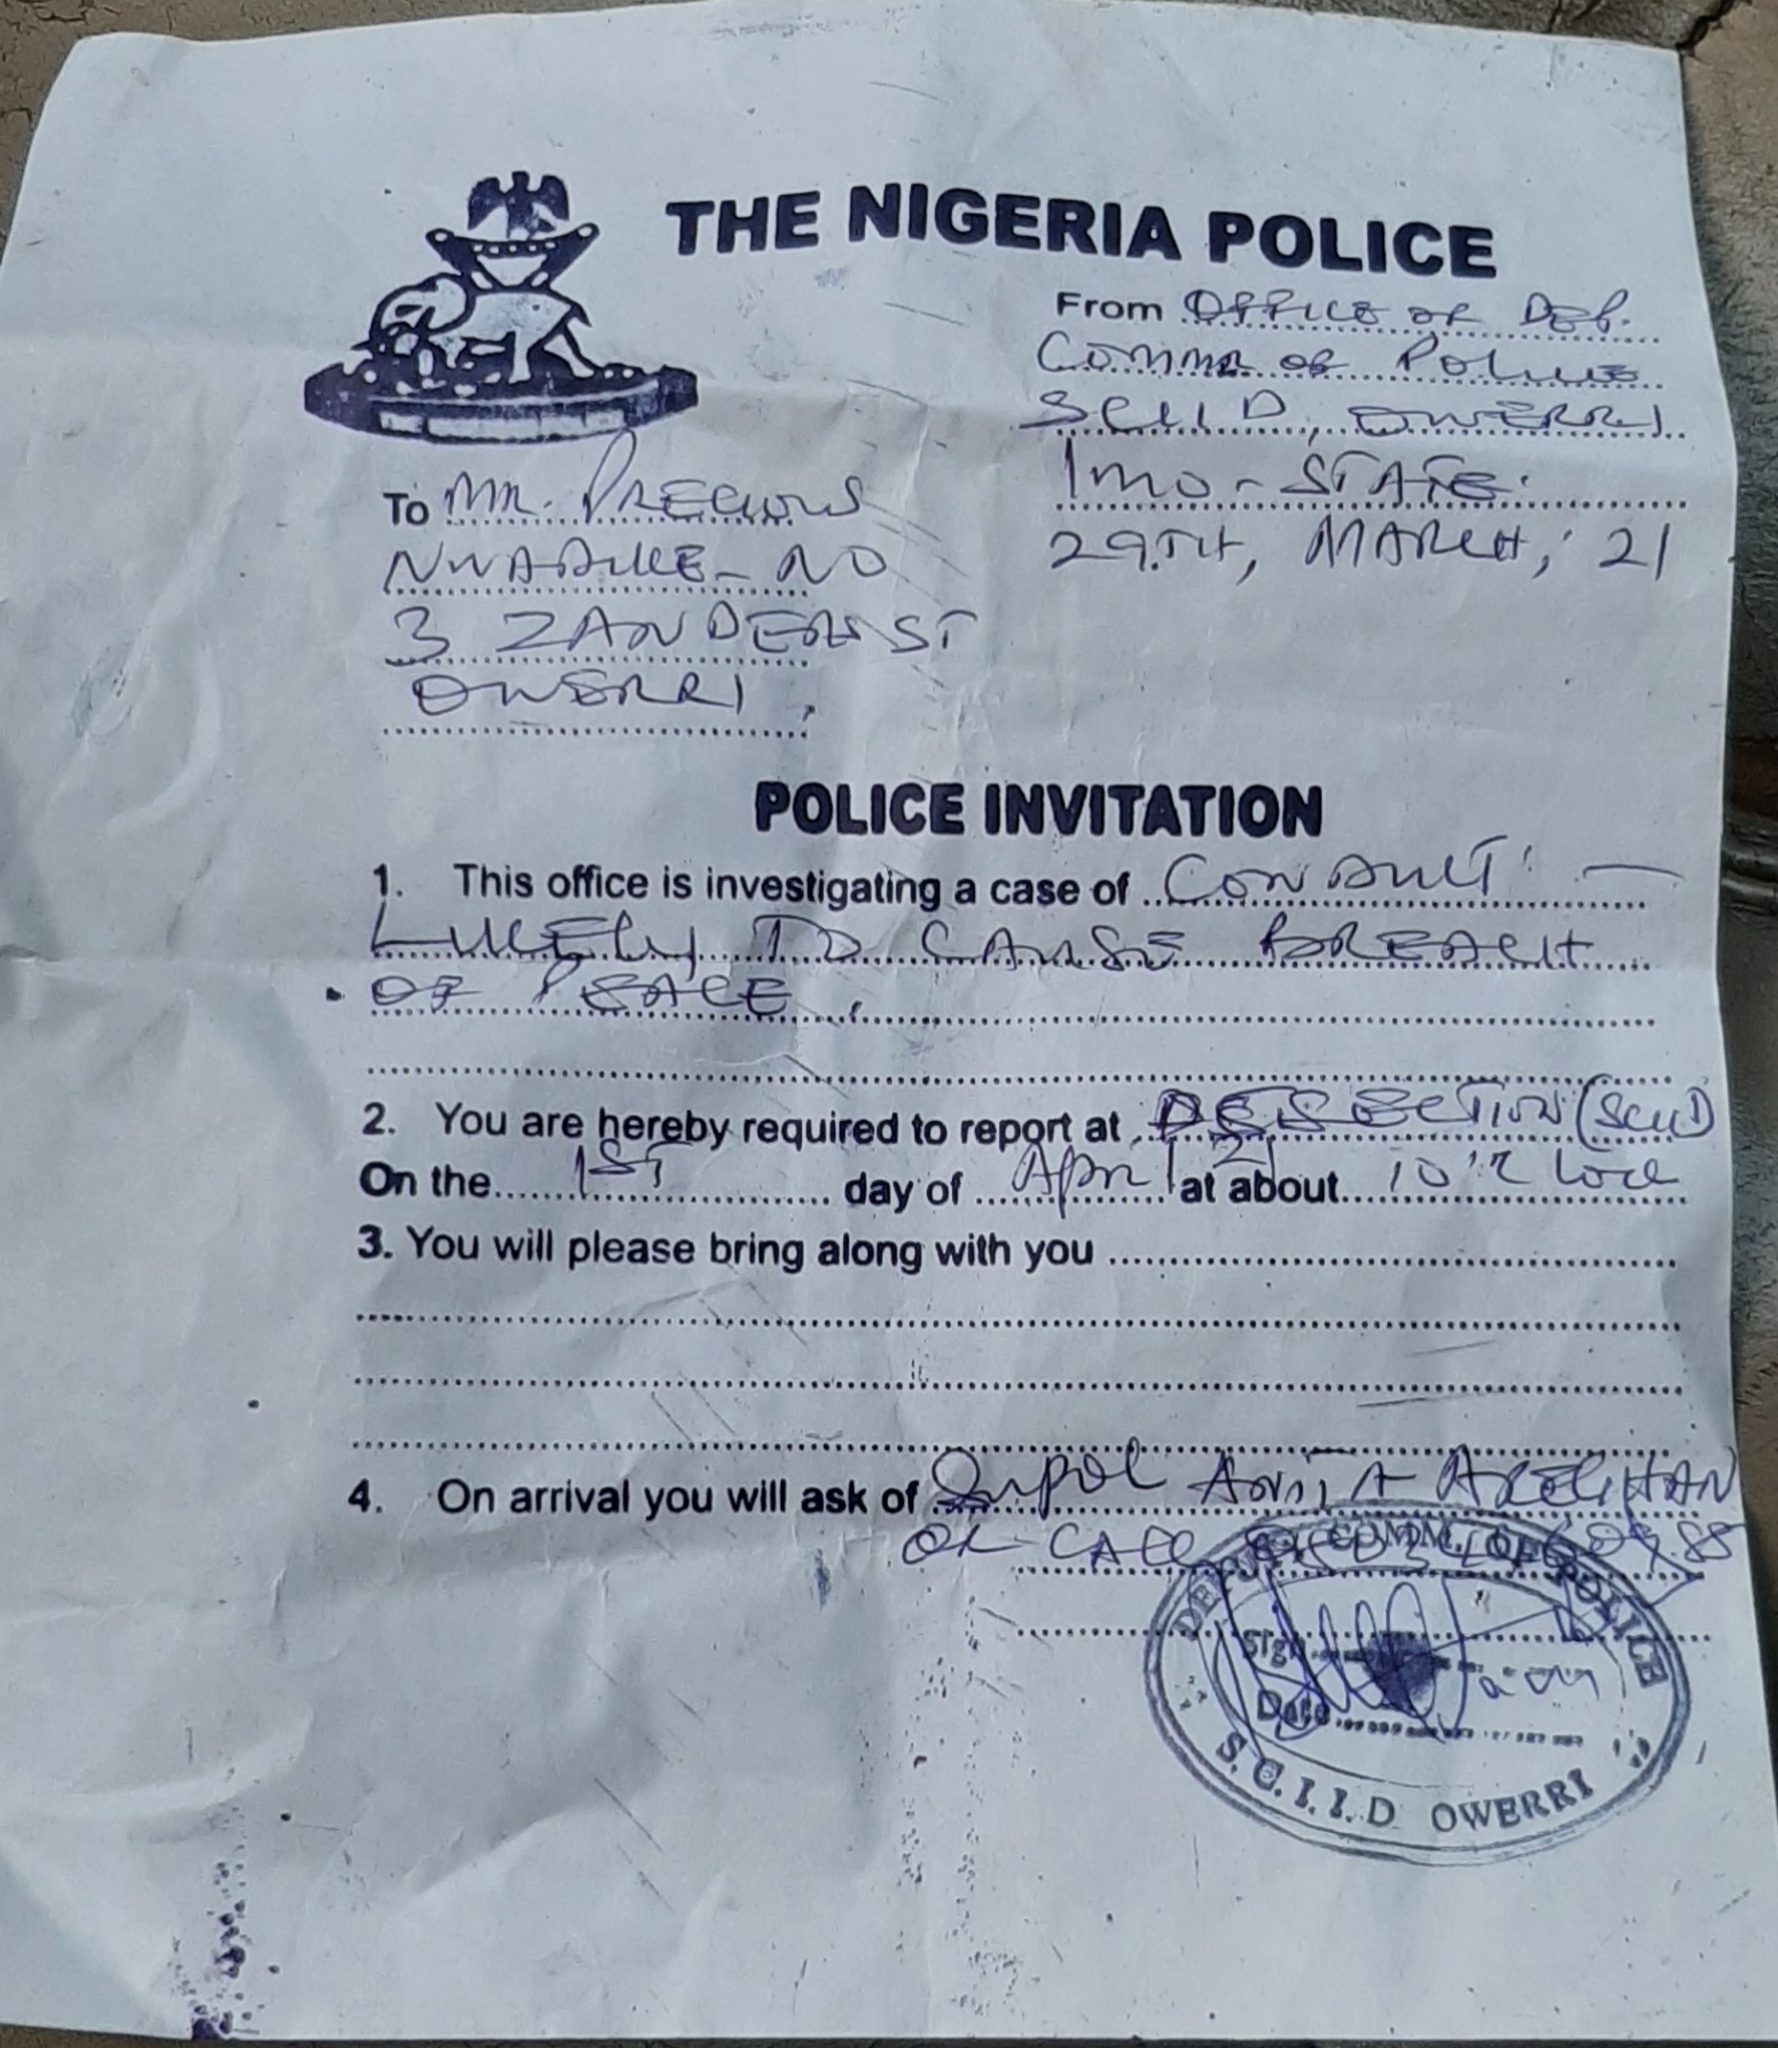 THE NIGERIA POLICE
From OFFICE OF DEP.
COMMR OF POLICE
SCIID, OWERRI
IMO-STATE.
29TH, MARCH, 21
To MR. PRECIOUS
NWADIKE - NO
3 ZANDERS ST
OWERRI.
POLICE INVITATION
1. This office is investigating a case of CONDUCT
LIKELY TO CAUSE BREACH
OF PEACE.
2. You are hereby required to report at SECTION (SCIID)
On the 1ST day of April 21 at about 10
3. You will please bring along with you
4. On arrival you will ask of
OR CALL
DEPUTY COMM. OF POLICE
Sign
Date
S.C.I.I.D OWERRI